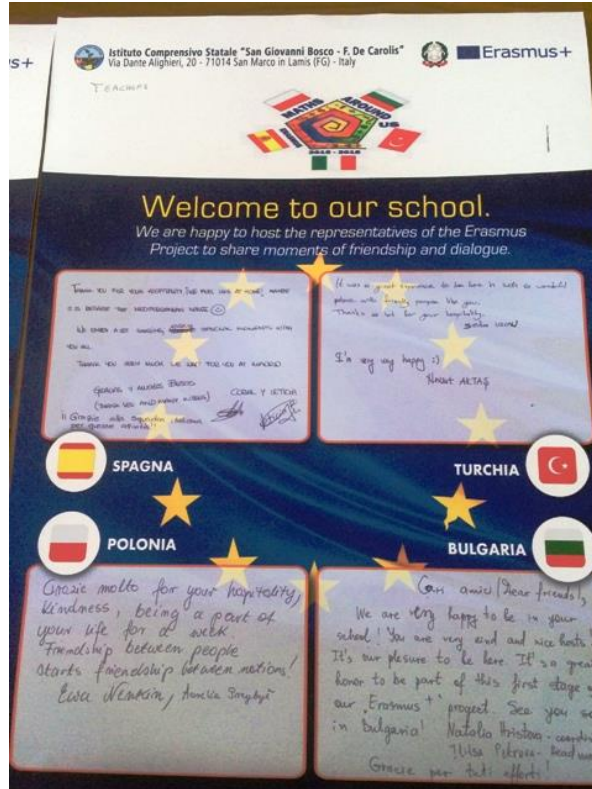 s+
Istituto Comprensivo Statale "San Giovanni Bosco - F. De Carolis"
Via Dante Alighieri, 20 - 71014 San Marco in Lamis (FG) - Italy
Erasmus+
TEACHERS
MATHS AROUND US
Welcome to our school.
We are happy to host the representatives of the Erasmus
Project to share moments of friendship and dialogue.
THANK YOU FOR YOUR HOSPITALITY
IS BECAUSE THE MEDITERRANEAN
SPECIAL MOMENTS WITH
YOU ALL.
THANK YOU VERY MUCH WE WAIT FOR YOU AT
GRACIAS Y
CORAL Y LETICIA
Grazie alla
It was a great experience to be here in such a wonderful
place with friendly people like you.
Thanks a lot for your hospitality.
I'm very very happy :)
AKTAŞ
SPAGNA
TURCHIA
POLONIA
BULGARIA
Grazie molto for your hospitality,
kindness, being a part of
your life for a week
Friendship between people
starts friendship between nations!
Ewa
Cari amici / Dear friends!,
We are very happy to be in your
school! You are very kind and nice hosts!
It's our plesure to be here. It's a great
honor to be part of this first stage
our "Erasmus+" progect. See you
in Bulgaria! Natalia Hristova -
Grazie per tuti